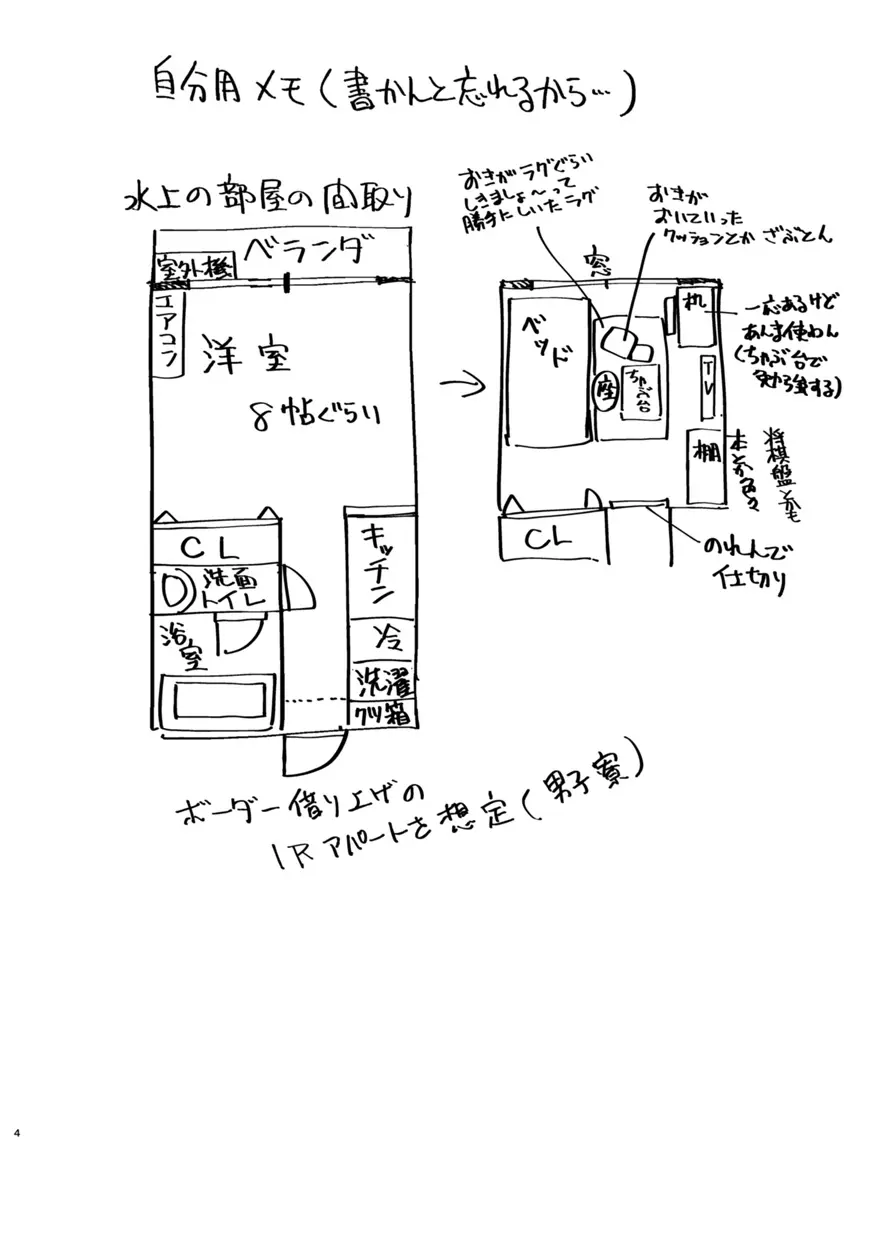 自分用メモ(書かんと忘れるから…)
水上の部屋の間取り
ベランダ
室外機
エアコン
洋室
8帖ぐらい
CL
洗面
トイレ
浴室
キッチン
冷
洗濯
クツ箱
おきがラグぐらい
しきましょ〜って
勝手にしいたラグ
おきが
おいていった
クッションとかざぶとん
窓
ベッド
座
ちゃぶ台
机
TV
棚
一応あるけど
あんま使わん
(ちゃぶ台で
勉強する)
将棋盤とかも
本とか色々
CL
のれんで
仕切り
ボーダー借り上げの
1Rアパートを想定(男子寮)
4